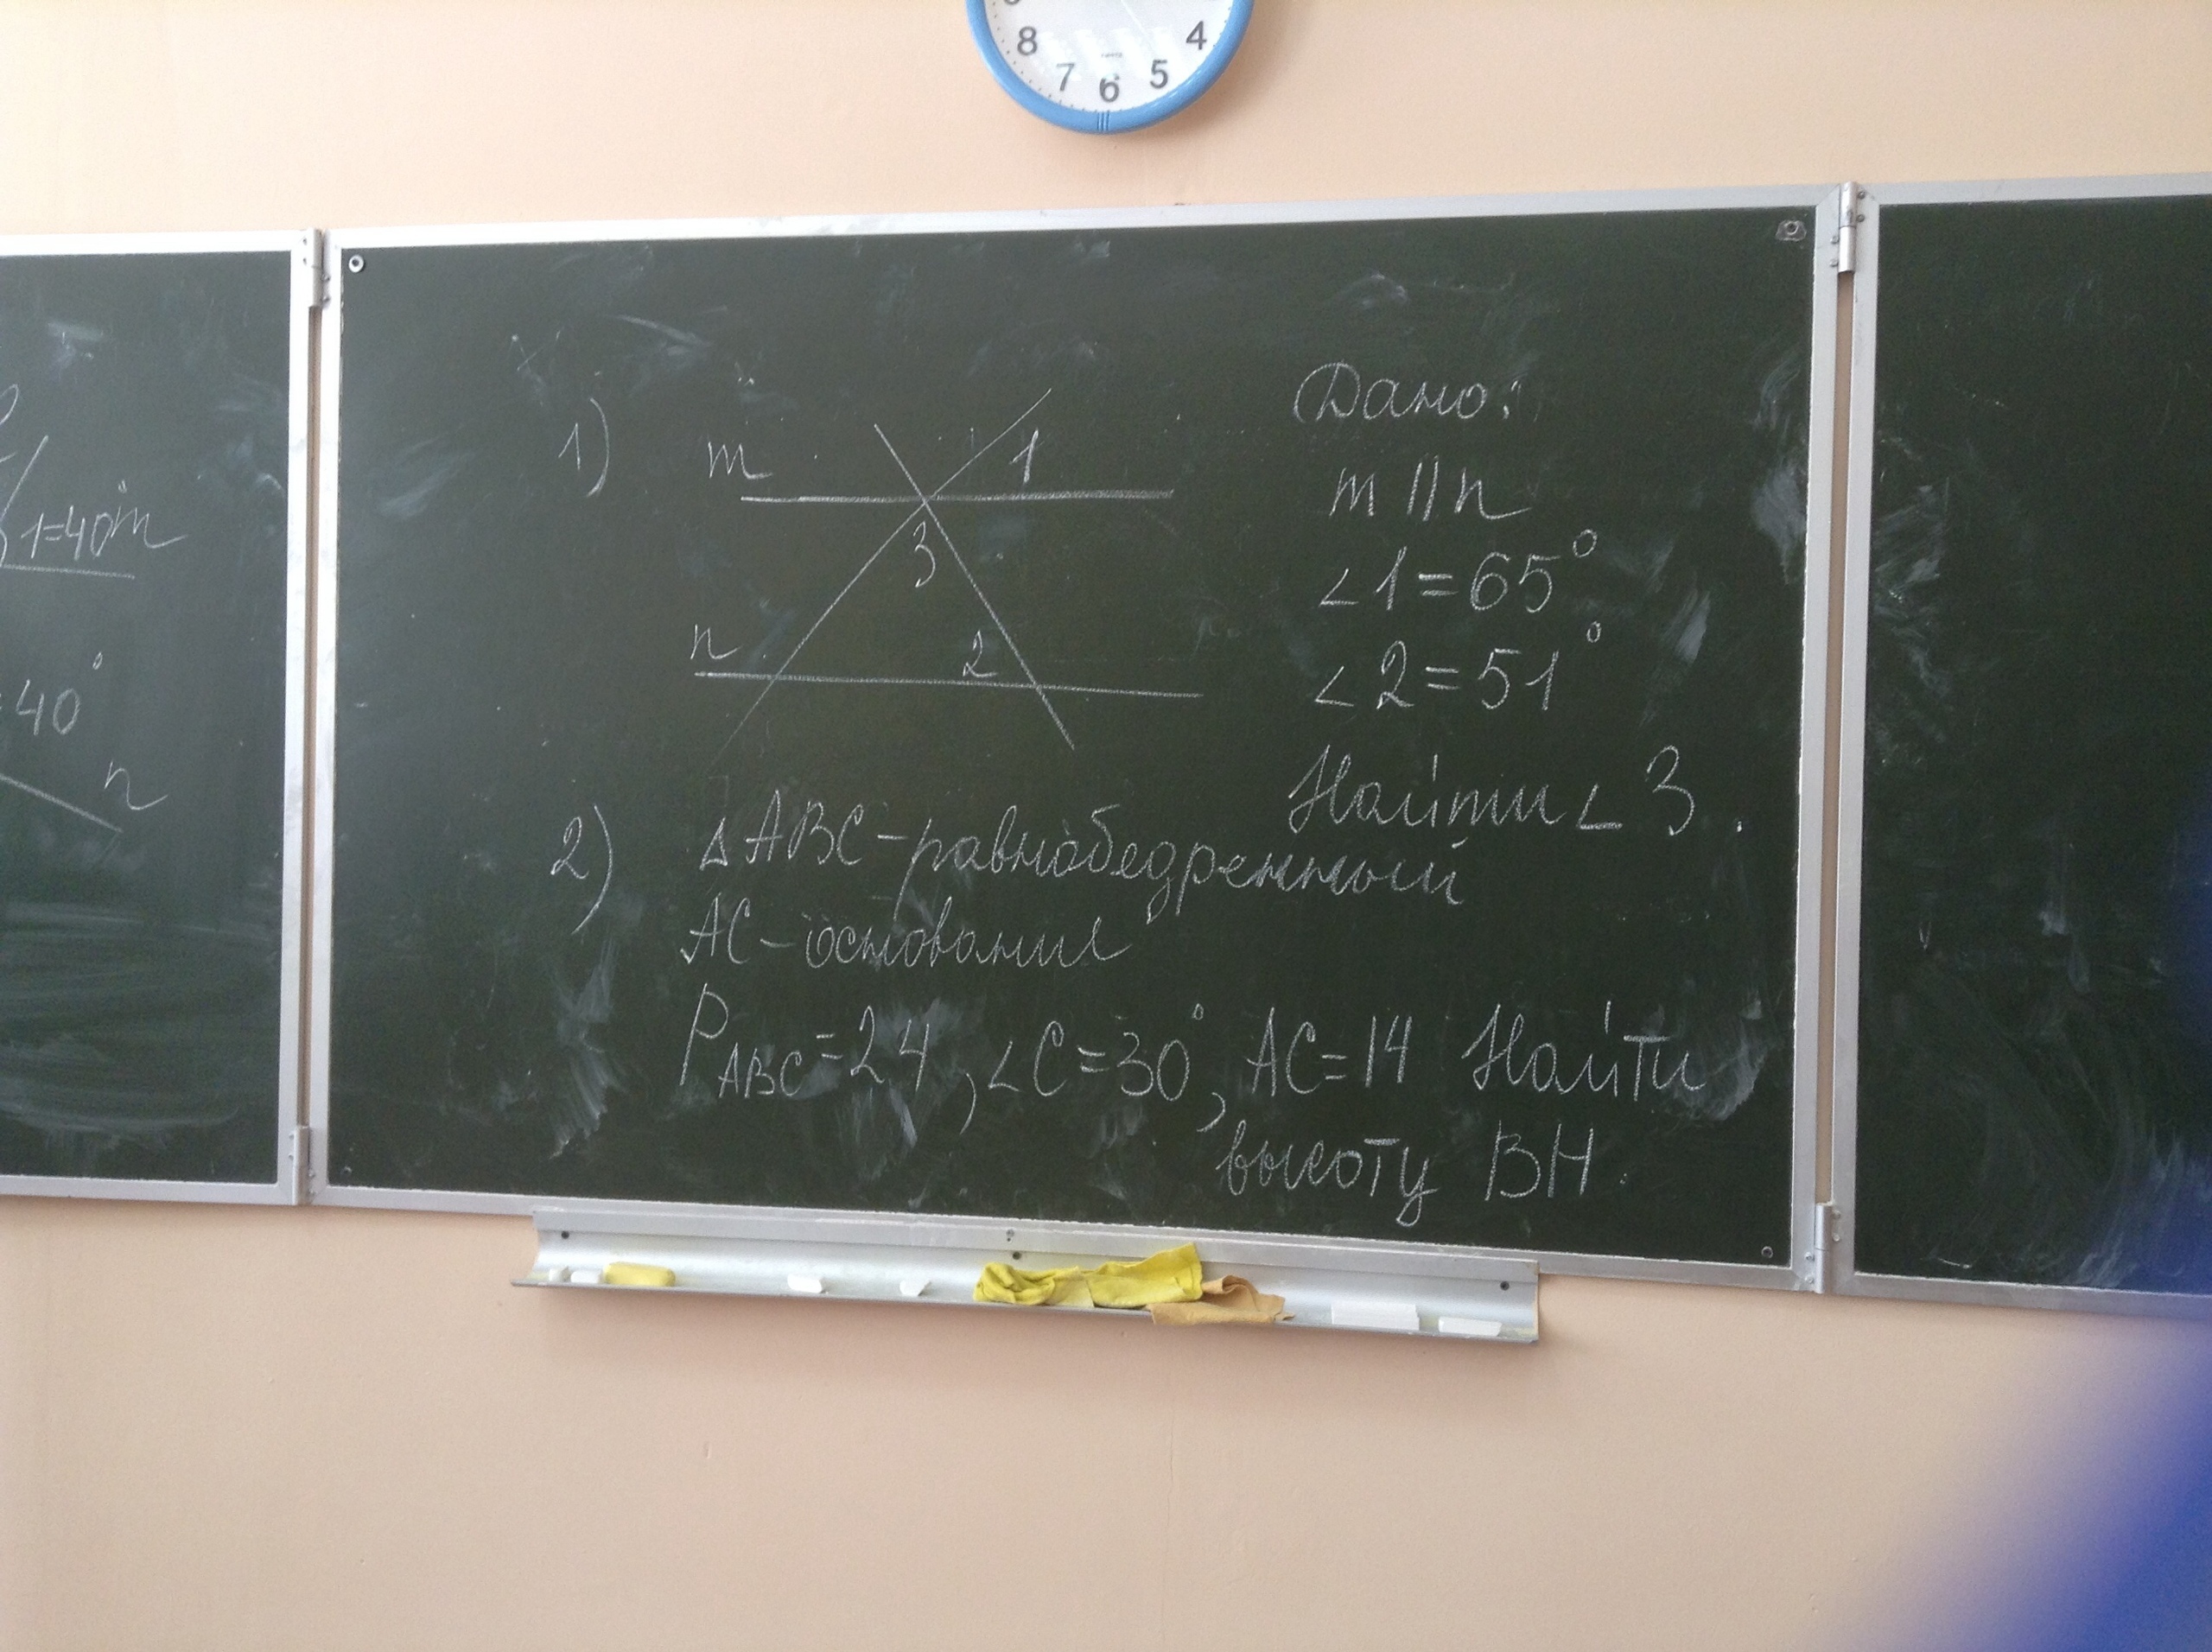 8 7 6 5 4
1=40° m
=40°
n
1) m 1
3
n 2
Дано:
m || n
∠1=65°
∠2=51°
Найти ∠3.
2) △ABC-равнобедренный
AC-основание
P ABC=24, ∠C=30°, AC=14 Найти
высоту BH.